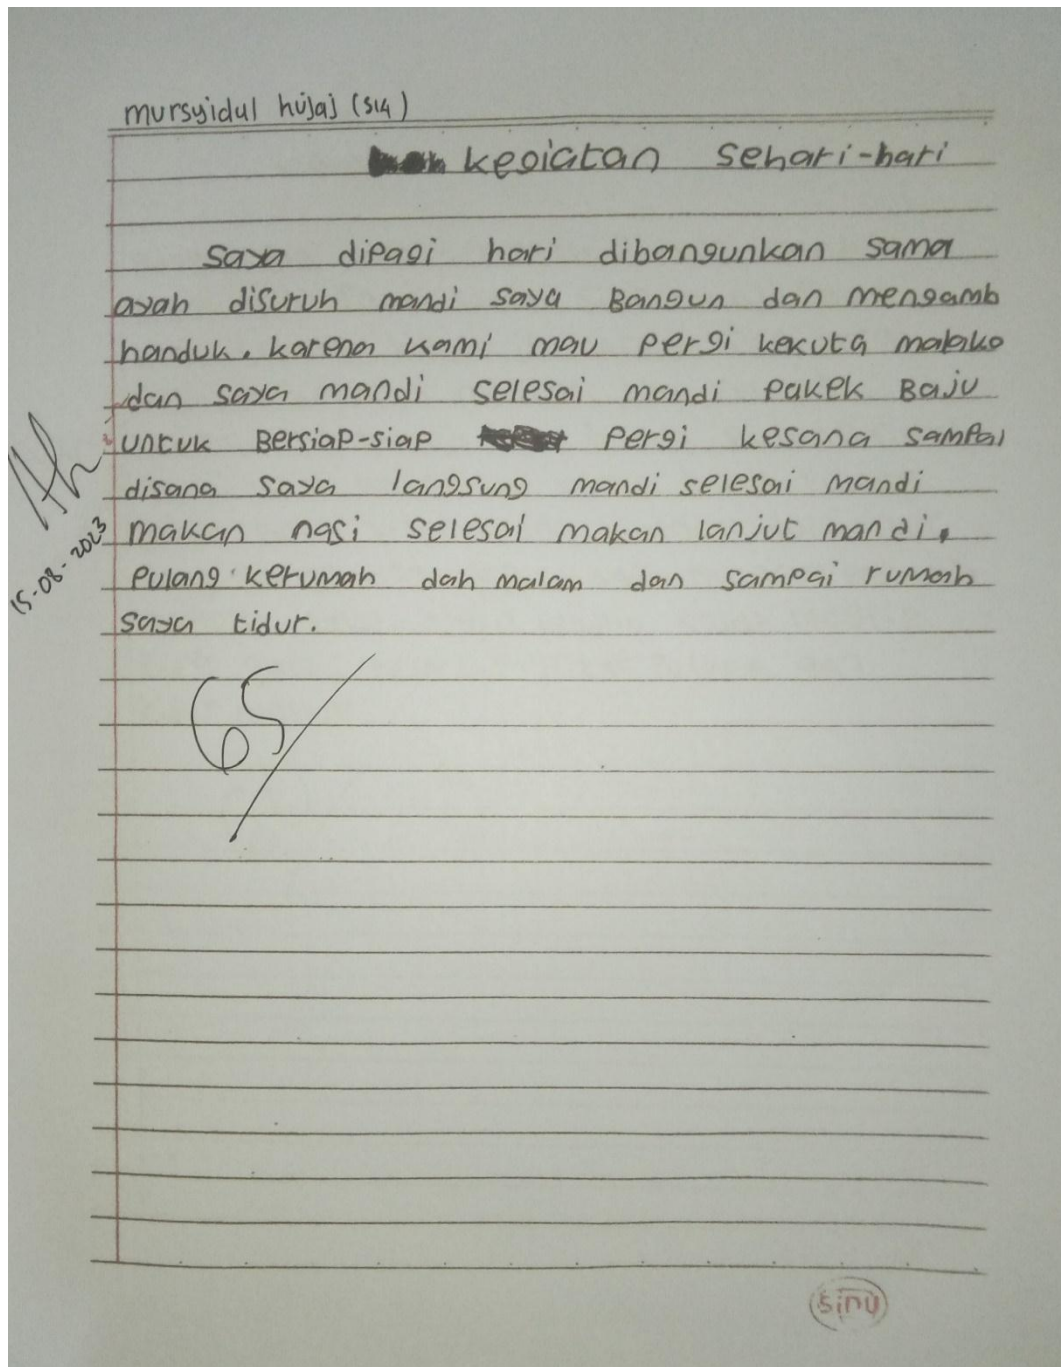 mursyidul hujaj (S14)
kegiatan sehari-hari
saya dipagi hari dibangunkan sama
ayah disuruh mandi saya Bangun dan mengamb
handuk. karena kami mau pergi kekuta malako
dan saya mandi selesai mandi pakek Baju
untuk Bersiap-siap pergi kesana sampai
disana saya langsung mandi selesai mandi
makan nasi selesai makan lanjut mandi.
pulang kerumah dah malam dan sampai rumah
saya tidur.
15-08-2023
65
sinu